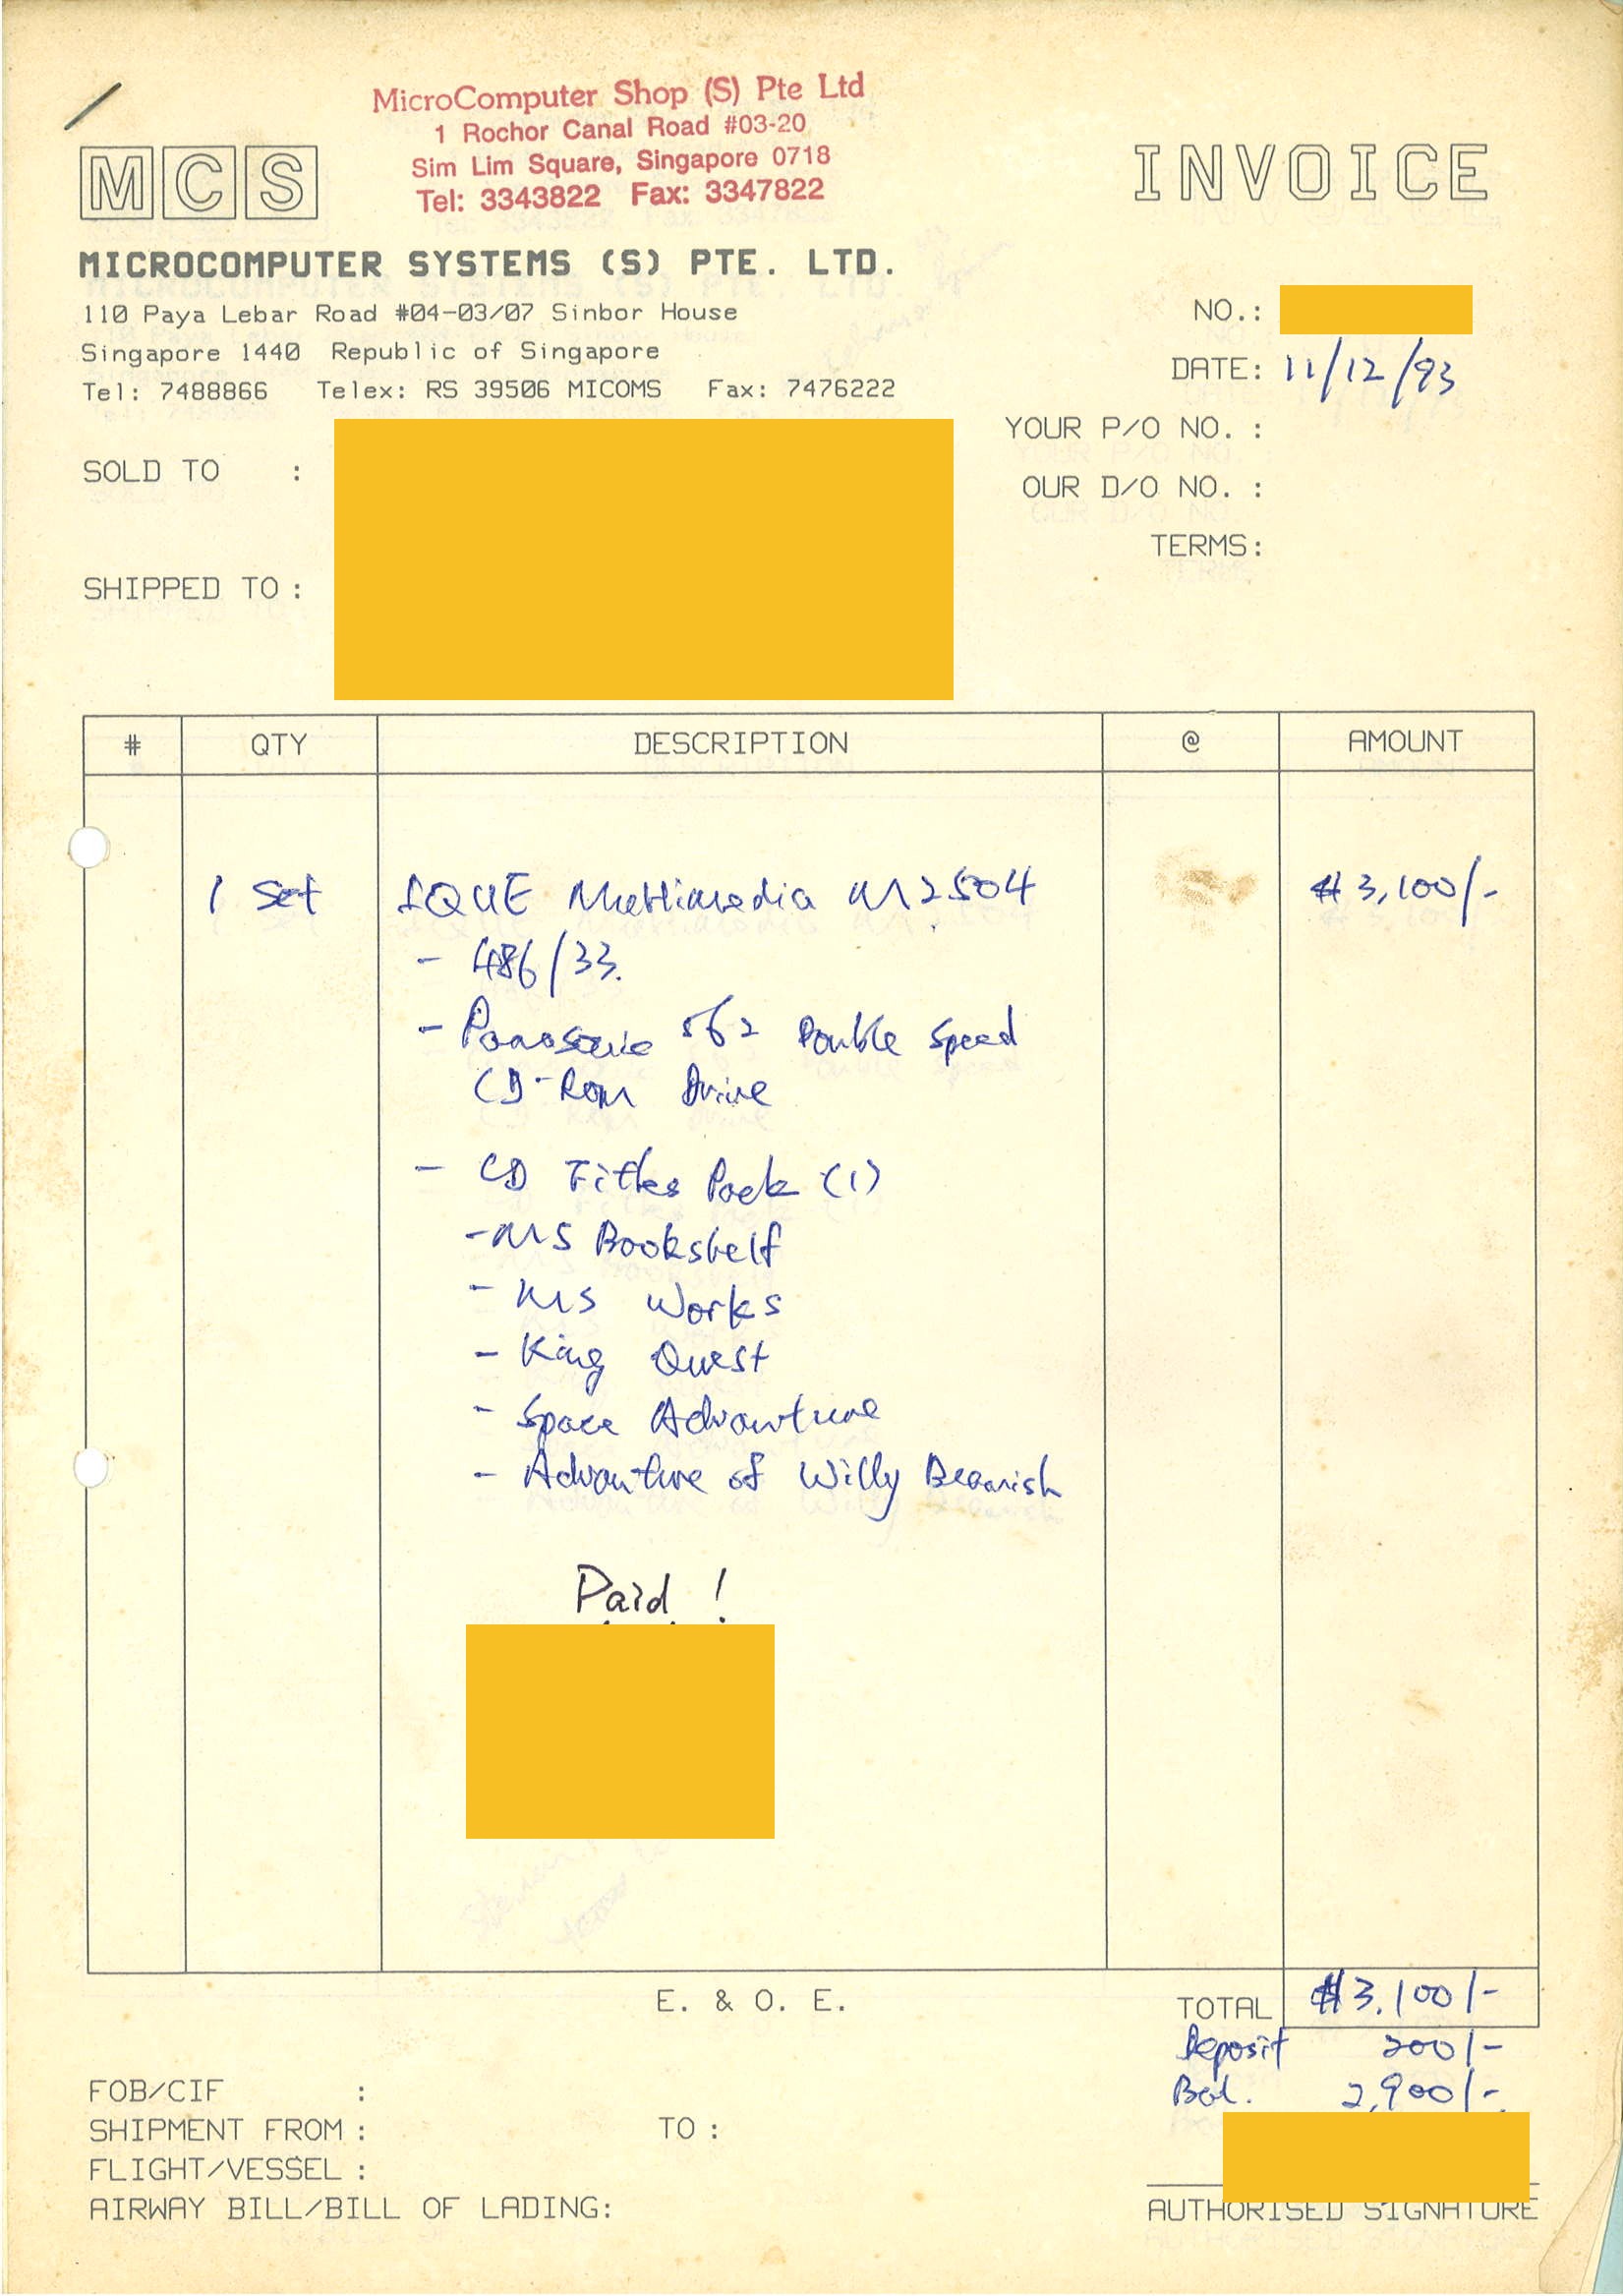 MicroComputer Shop (S) Pte Ltd
1 Rochor Canal Road #03-20
Sim Lim Square, Singapore 0718
Tel: 3343822 Fax: 3347822
MCS
INVOICE
MICROCOMPUTER SYSTEMS (S) PTE. LTD.
110 Paya Lebar Road #04-03/07 Sinbor House
Singapore 1440 Republic of Singapore
Tel: 7488866 Telex: RS 39506 MICOMS Fax: 7476222
NO.:
DATE: 11/12/93
YOUR P/O NO. :
OUR D/O NO. :
TERMS:
SOLD TO :
SHIPPED TO :
# QTY DESCRIPTION @ AMOUNT
1 Set IQUE Multimedia M2504 $3,100/-
- 486/33.
- Panasonic 562 Double Speed
CD-Rom Drive
- CD Titles Pack (1)
- MS Bookshelf
- MS Works
- King Quest
- Space Advanture
- Advanture of Willy Beamish
Paid !
E. & O. E.
TOTAL $3,100/-
Deposit 200/-
Bal. 2,900/-
FOB/CIF :
SHIPMENT FROM : TO :
FLIGHT/VESSEL :
AIRWAY BILL/BILL OF LADING:
AUTHORISED SIGNATURE